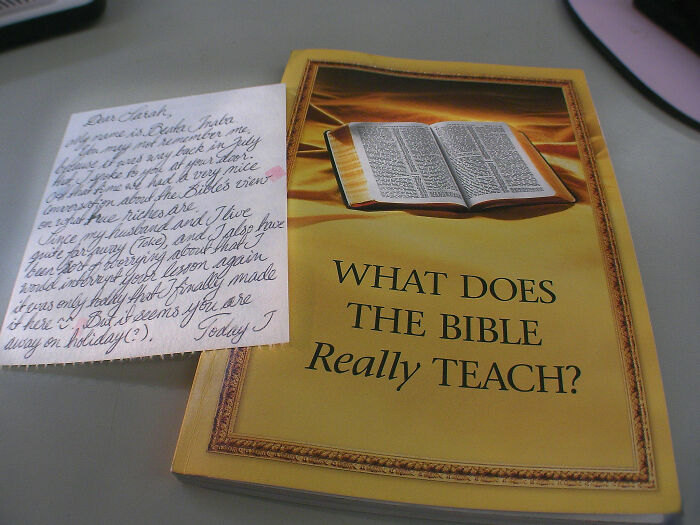 Dear Sarah,
My name is Beata Inaba
You may not remember me,
because it was way back in July
that I spoke to you at your door.
At that time we had a very nice
conversation about the Bible's view
on what true riches are.
Since my husband and I live
quite far away (Toho), and I also have
been sort of worrying about that I
would interrupt your lesson again
it was only today that I finally made
it here But it seems you are
away on holiday(?). Today I
WHAT DOES
THE BIBLE
Really TEACH?